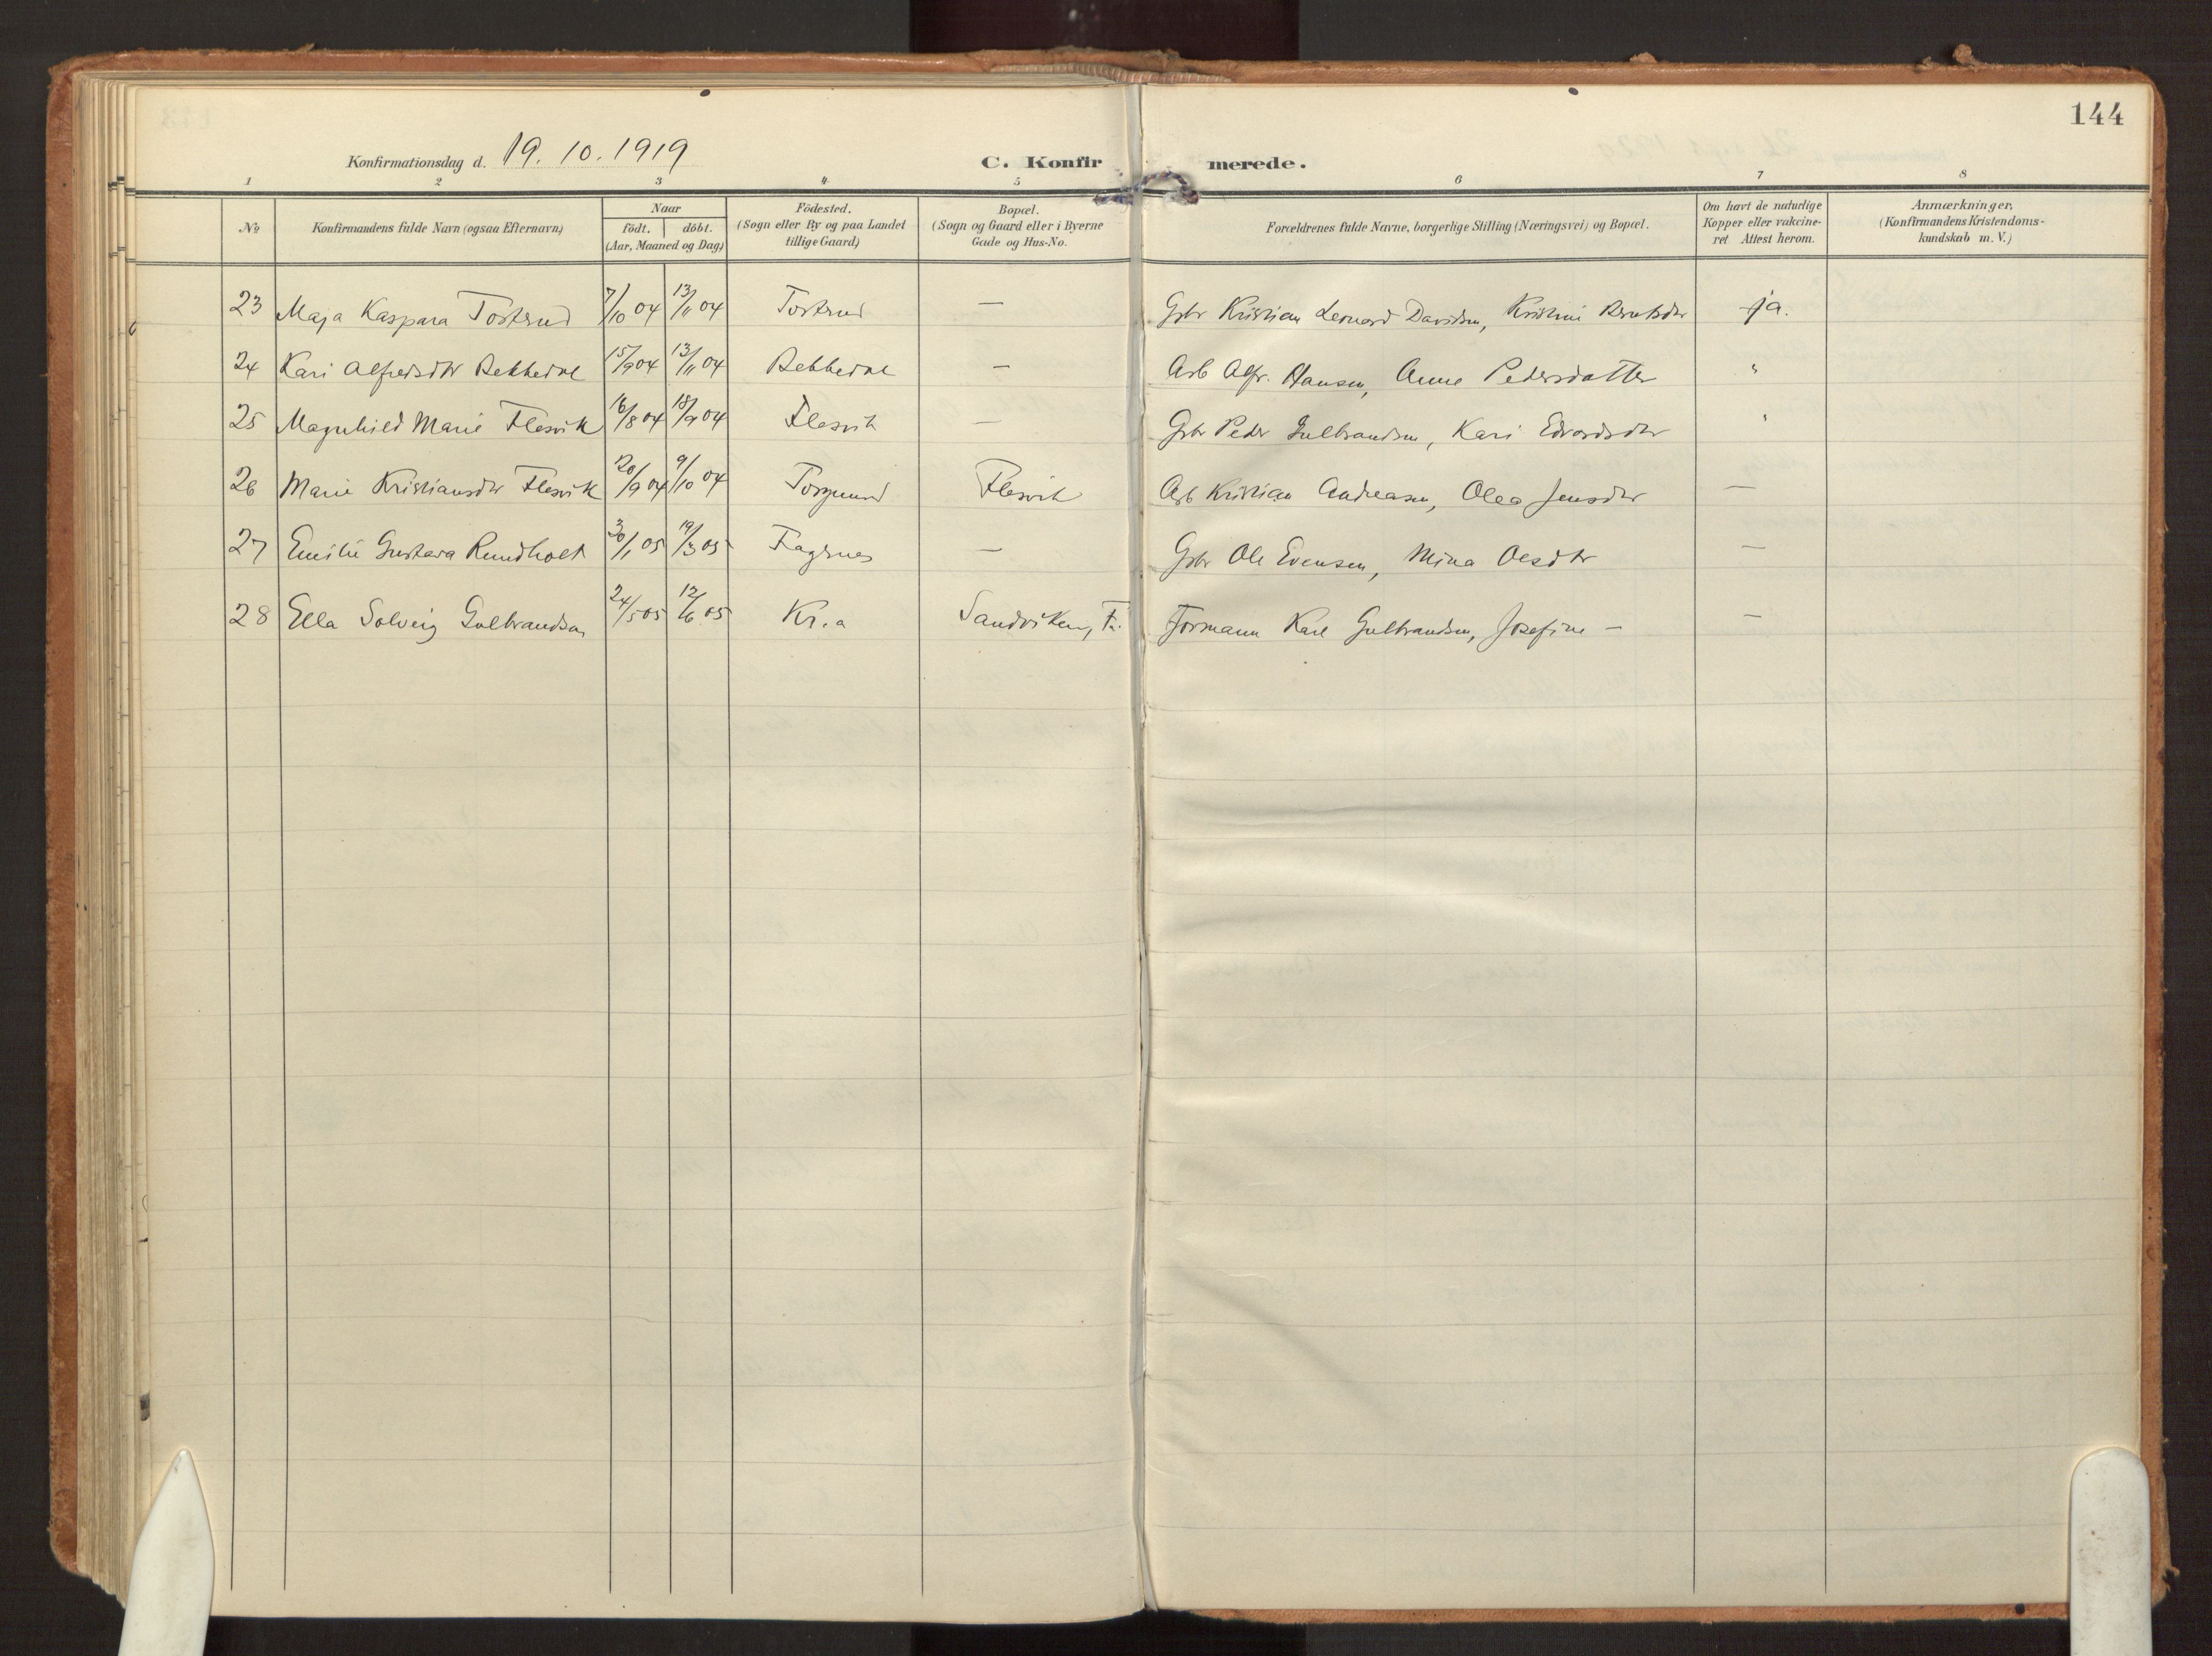 144
Konfirmationsdag d. 19. 10. 1919 C. Konfirmerede.
1 2 3 4 5 6 7 8
No Konfirmandens fulde Navn (ogsaa Efternavn)
Naar
födt. döbt.
(Aar, Maaned og Dag)
Födested.
(Sogn eller By og paa Landet
tillige Gaard)
Bopæl.
(Sogn og Gaard eller i Byerne
Gade og Hus-No.
Forældrenes fulde Navne, borgerlige Stilling (Næringsvei) og Bopæl.
Om havt de naturlige
Kopper eller vakcine-
ret Attest herom.
Anmærkninger,
(Konfirmandens Kristendoms-
kundskab m. V.)
23 Maja Kaspara Tosterud 7/10 04 13/11 04 Tosterud — Gbr Kristian Leonard Davidsen, Kristine Berntsdtr ja.
24 Kari Alfredsdtr 15/9 04 13/11 04 — Arb Alfr. Hansen, Anne Pedersdatter "
25 Magnhild Marie Flesvik 16/8 04 18/9 04 Flesvik — Gbr Peder Gulbrandsen, Kari Edvardsdtr "
26 Marie Kristiansdtr Flesvik 20/9 04 9/10 04 Flesvik Arb Kristian Andreasen, Olea Jensdtr —
27 Emilie Gustava Rundholt 30/1 05 19/3 05 Fagernes — Gbr Ole Evensen, Mina Olesdtr —
28 Ella Solveig Gulbrandsen 24/5 05 12/6 05 Kr.a Sandviken, Formann Karl Gulbrandsen, Josefine — —